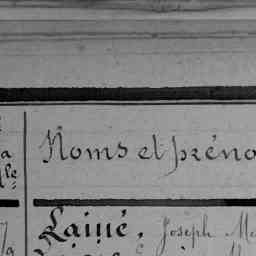 Noms et préno
Lainé, Joseph Me